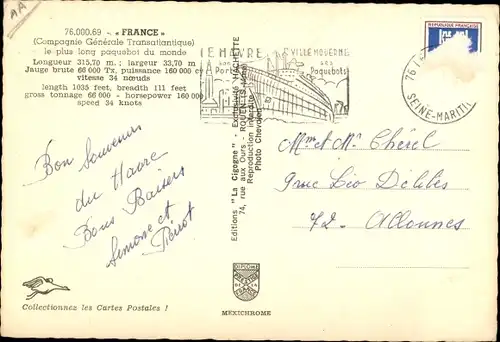 AA
76.000.69 - « FRANCE »
(Compagnie Générale Transatlantique)
le plus long paquebot du monde
Longueur 315,70 m. ; largeur 33,70 m
Jauge brute 66 000 Tx, puissance 160 000 cv
vitesse 34 nœuds
length 1035 feet, breadth 111 feet
gross tonnage 66 000 - horsepower 160 000
speed 34 knots
Bon Souvenir
du Havre
Bons Baisers
Simone et
Collectionnez les Cartes Postales !
Editions "La Cigogne" - Exclusivité HACHETTE
74, rue aux Ours - ROUEN
Reproduction interdite
Photo Chevalier
LE HAVRE
VILLE MODERNE
son
Port
ses
Paquebots
REPUBLIQUE FRANCAISE
76
SEINE-MARITI
Mme et Mr Chérel
9 rue Léo Délibes
72 - Allonnes
MEXICHROME